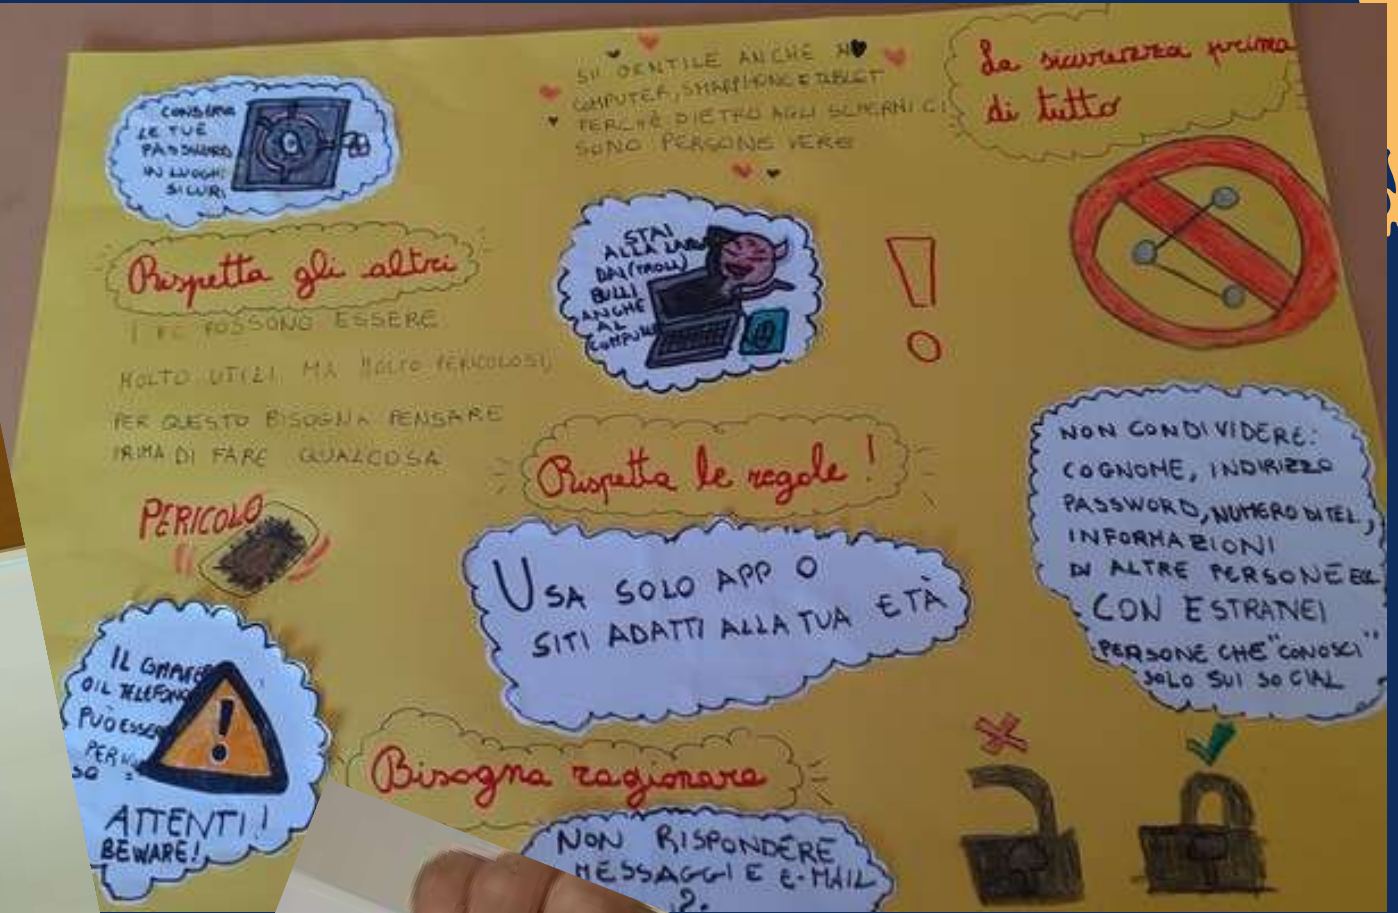 CONSERVA
LE TUE
PASSWORD
IN LUOGHI
SICURI
SII GENTILE ANCHE
COMPUTER, SMARPHONE E TABLET
PERCHÈ DIETRO AGLI SCHERMI CI
SONO PERSONE VERE
La sicurezza prima
di tutto
Rispetta gli altri
I PC POSSONO ESSERE
MOLTO UTILI MA MOLTO PERICOLOSI,
PER QUESTO BISOGNA PENSARE
PRIMA DI FARE QUALCOSA
STAI
ALLA LARGA
DAI (TROLL)
BULLI
ANCHE
AL
COMPUTER
!
Rispetta le regole!
PERICOLO
USA SOLO APP O
SITI ADATTI ALLA TUA ETÀ
NON CONDIVIDERE:
COGNOME, INDIRIZZO
PASSWORD, NUMERO DI TEL.,
INFORMAZIONI
DI ALTRE PERSONE ECC.
CON ESTRANEI
PERSONE CHE "CONOSCI"
SOLO SUI SOCIAL
IL
O IL TELEFONO
PUÒ ESSERE
!
ATTENTI!
BEWARE!
Bisogna ragionare
NON RISPONDERE
MESSAGGI E E-MAIL